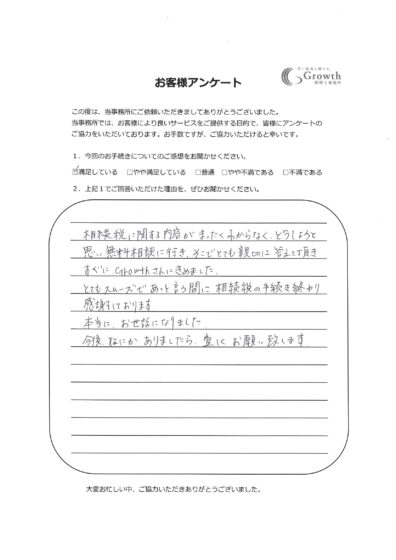 Growth
お客様アンケート
この度は、当事務所にご依頼いただきましてありがとうございました。
当事務所では、お客様により良いサービスをご提供する目的で、皆様にアンケートの
ご協力をいただいております。お手数ですが、ご協力いただけると幸いです。
１．今回のお手続きについてのご感想をお聞かせください。
☑満足している □やや満足している □普通 □やや不満である □不満である
２．上記１でご回答いただけた理由を、ぜひお聞かせください。
相続税に関する内容がまったくわからなく、どうしようと
思い無料相談に行き、そこでとても親切に答えて頂き
すぐに、Growthさんにきめました。
とてもスムーズであっと言う間に相続税の手続き終わり
感謝しております
本当に、お世話になりました
今後、なにかありましたら、宜しくお願い致します。
大変お忙しい中、ご協力いただきありがとうございました。